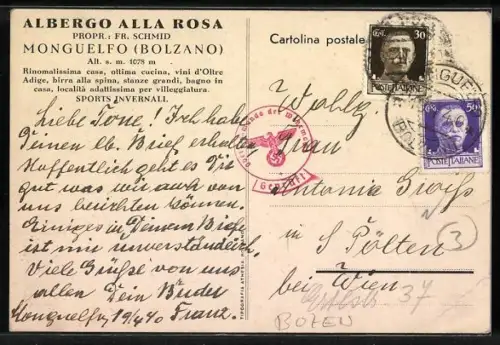 ALBERGO ALLA ROSA
PROPR.: FR. SCHMID
MONGUELFO (BOLZANO)
Alt. s. m. 1078 m
Rinomatissima casa, ottima cucina, vini d'Oltre
Adige, birra alla spina, stanze grandi, bagno in
casa, località adattissima per villeggiatura.
SPORTS INVERNALI.
Liebe Tone! Ich habe
Deinen lb. Brief erhalten
Hoffentlich geht es Dir
gut was wir auch von
uns berichten können.
Einiges in Deinem Briefe
ist mir unverständlich.
Viele Grüße von uns
allen Dein Bruder
Monguelfo 19/4 40 Franz.
Cartolina postale
30
POSTE ITALIANE
50
POSTE ITALIANE
Geprüft
Wohlg.
Frau
Antonia
St Pölten
bei Wien
37
3
BOZEN